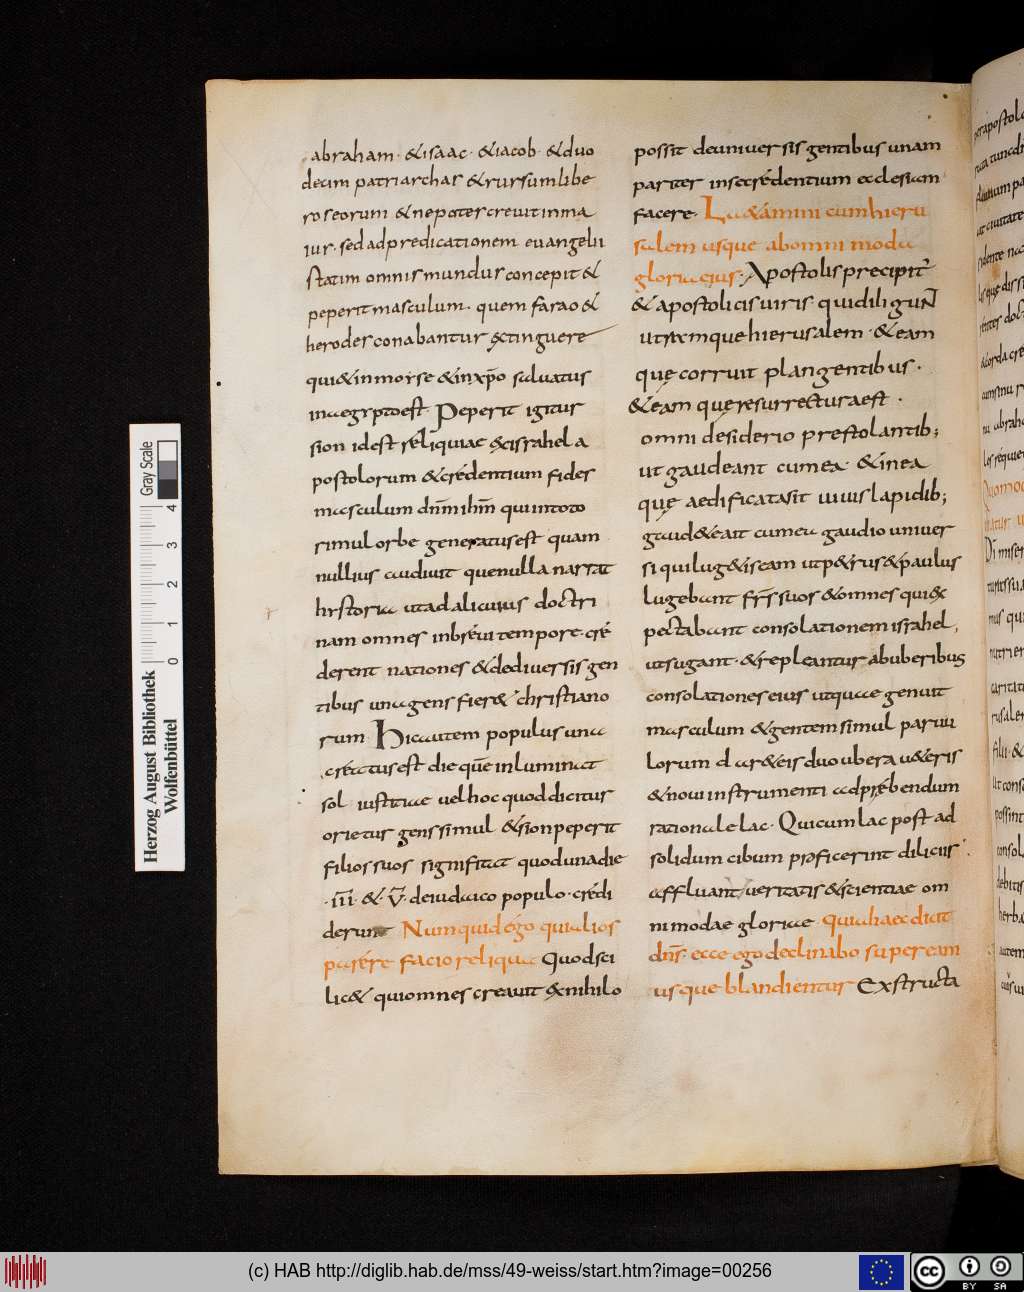 abraham · & isaac · & iacob · & duo
decim patriarchas & rursum libe
ros eorum & nepoter creuit in ma
ius · sed ad predicationem euangelii
statim omnis mundus concepit &
peperit masculum · quem farao &
herodes conabantur extinguere
qui & in morse & in xp̄o saluatus
in aegypto est · Peperit igitur
sion id est reliquiae ex israhel a
postolorum & credentium fides
masculum dn̄m ihm̄ qui in toto
rimul orbe generatus est quam
nullius audiuit que nulla narrat
hystoria ut ad alicuius doctri
nam omnes in breui tempore · cre
derent nationes & de diuersis gen
tibus una gens fier& christiano
rum · Hic autem populus una
creatus est die quē inluminat
sol iustitiae uel hoc quod dicitur
orietur gens simul & sion peperit
filios suos significat quod una die
· iii · & · v̄ · de iudaico populo · credi
derunt Numquid ego qui alios
parere facio reliqua Quod sci
lic& qui omnes creauit ex nihilo
possit de uniuersis gentibus unam
pariter in se credentium ecclesiam
facere · Laetamini cum hieru
salem usque ab omnimoda
gloria eius · Apostolis precipit̄
& apostolicis uiris · qui diligun̄
utramque hierusalem · & eam
quę corruit plangentibus ·
& eam quę resurrectura est ·
omni desiderio prestolantib;
ut gaudeant cum ea · & in ea
quę aedificata sit uiuis lapidib;
gaud&e ait cum ea gaudio uniuer
si qui lug&is eam ut p&rus & paulus
lugebant fr̄s suos & omnes qui ex
pectabant consolationem israhel,
ut sugant · & repleantur ab uberibus
consolationes eius utq; quae genuit
masculum & gentem simul paruu
lorum d ar& eis duo ubera u&eris
& noui instrumenti ad prebendum
rationale lac · Qui cum lac post ad
solidum cibum proficerint diliciis ·
affluant ueritatis & scientiae om
nimodae gloriae · quia haec dicit
dn̄s · ecce ego declinabo super eam
usque blandientur Exstructa
Herzog August Bibliothek
Wolfenbüttel
Gray Scale
0 1 2 3 4
(c) HAB http://diglib.hab.de/mss/49-weiss/start.htm?image=00256
cc BY SA